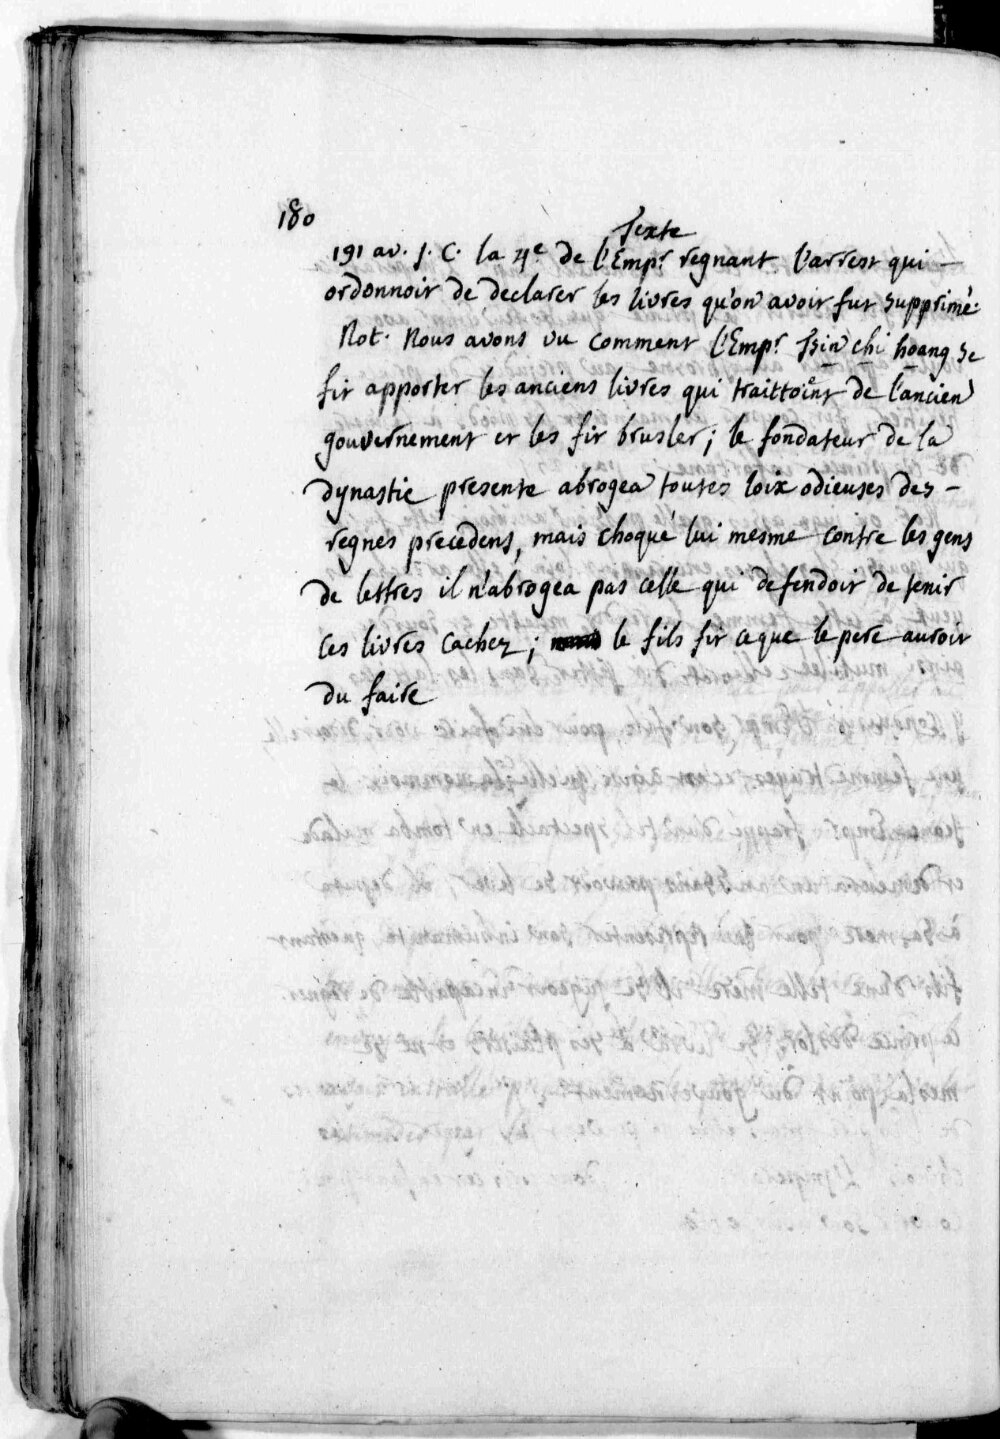 180
Texte
191 av. J. C. la 4e de l'Empr. regnant l'arrest qui –
ordonnoit de declarer les livres qu'on avoit fut supprimé.
Not. Nous avons vu comment l'Empr. Tsin chi hoang se
fit apporter les anciens livres qui traittoient de l'ancien
gouvernement et les fit brusler; le fondateur de la
dynastie presente abrogea toutes loix odieuses des –
regnes precedens, mais choqué lui mesme contre les gens
de lettres il n'abrogea pas celle qui defendoit de tenir
ces livres cachez; le fils fit ce que le pere auroit
du faire